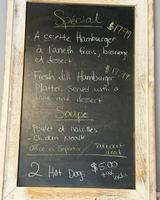 Spécial
$17.99
Assiette Hamburger
à l'aneth frais, breuvage
et dessert
$17.99
Fresh dill Hamburger
Platter. Served with a
and dessert
Soupe
Poulet et nouilles
Chicken Noodle
2 Hot Dogs $5.00
tax incl.